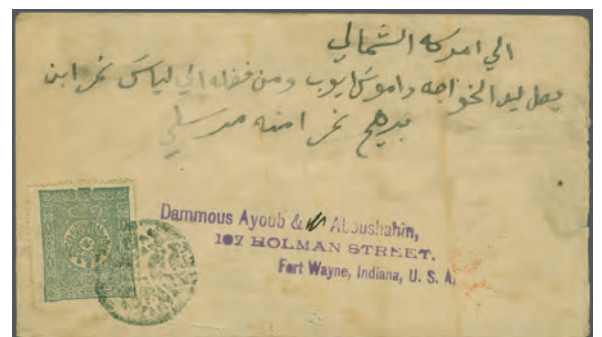 الي امركه الشمالي
يصل ليد الخواجه داموس ايوب ومن فضله الي لياس نمر ابن
نمر امنه
Dammous Ayoub & Aboushahin,
107 HOLMAN STREET,
Fort Wayne, Indiana, U. S. A.